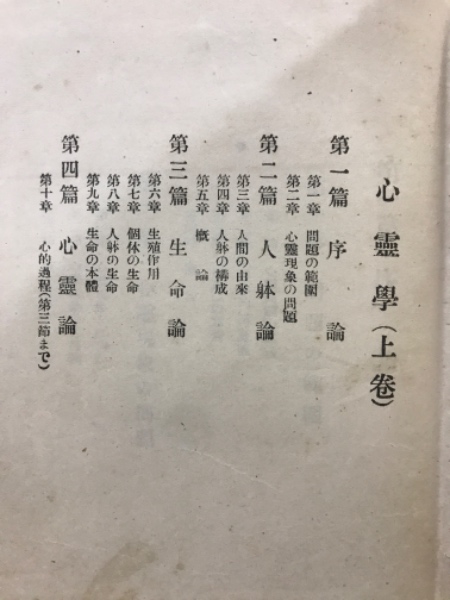 心靈學（上卷）
第一篇 序論
第一章 問題の範圍
第二章 心靈現象の問題
第二篇 人躰論
第三章 人間の由來
第四章 人躰の構成
第五章 概論
第三篇 生命論
第六章 生殖作用
第七章 個体の生命
第八章 人躰の生命
第九章 生命の本體
第四篇 心靈論
第十章 心的過程（第三節まで）